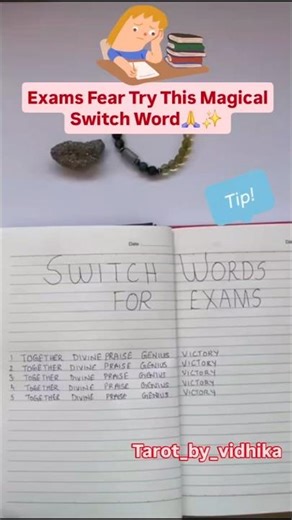 Exams Fear Try This Magical
Switch Word🙏✨
Tip!
Date
Date
SWITCH WORDS
FOR EXAMS
1 TOGETHER DIVINE PRAISE GENIUS VICTORY
2 TOGETHER DIVINE PRAISE GENIUS VICTORY
3 TOGETHER DIVINE PRAISE GENIUS VICTORY
4 TOGETHER DIVINE PRAISE GENIUS VICTORY
5 TOGETHER DIVINE PRAISE GENIUS VICTORY
Tarot_by_vidhika